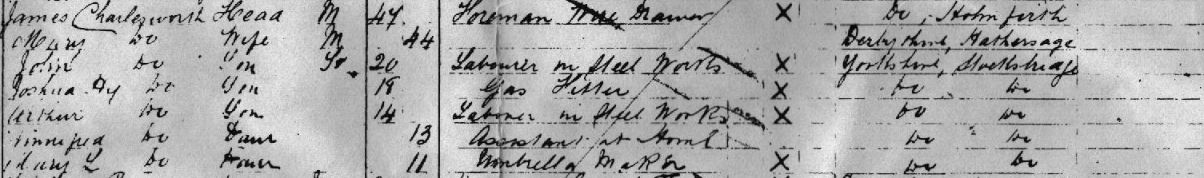 James Charlesworth Head M 47 Foreman Wire Drawer X Do, Holmfirth
Mary Do Wife M 44 Derbyshire, Hathersage
John Do Son 20 Labourer in Steel Works X Yorkshire, Stocksbridge
Joshua Hy Do Son 18 Gas Fitter X Do Do
Arthur Do Son 14 Laborer in Steel Works X Do Do
Winnifred Do Daur 13 Assistant at Home Do Do
Mary L Do Daur 11 Umbrella Maker X Do Do